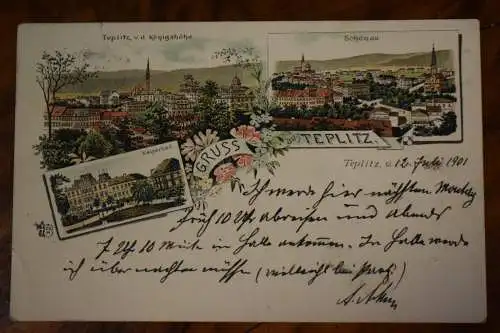 Teplitz v. d. Königshöhe
Schönau
GRUSS
aus
TEPLITZ.
Kaiserbad
Teplitz, d. 12. Juli 1901
Ich werde hier nächsten Montag
früh 10 Uhr abreisen und abends
7 Uhr 10 Min in Halle ankommen. In Halle werde
ich übernachten müssen (vielleicht bei
A.